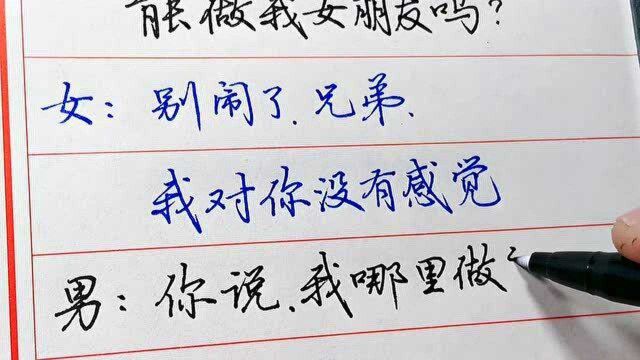 能做我女朋友吗?
女：别闹了.兄弟.
我对你没有感觉
男：你说.我哪里做